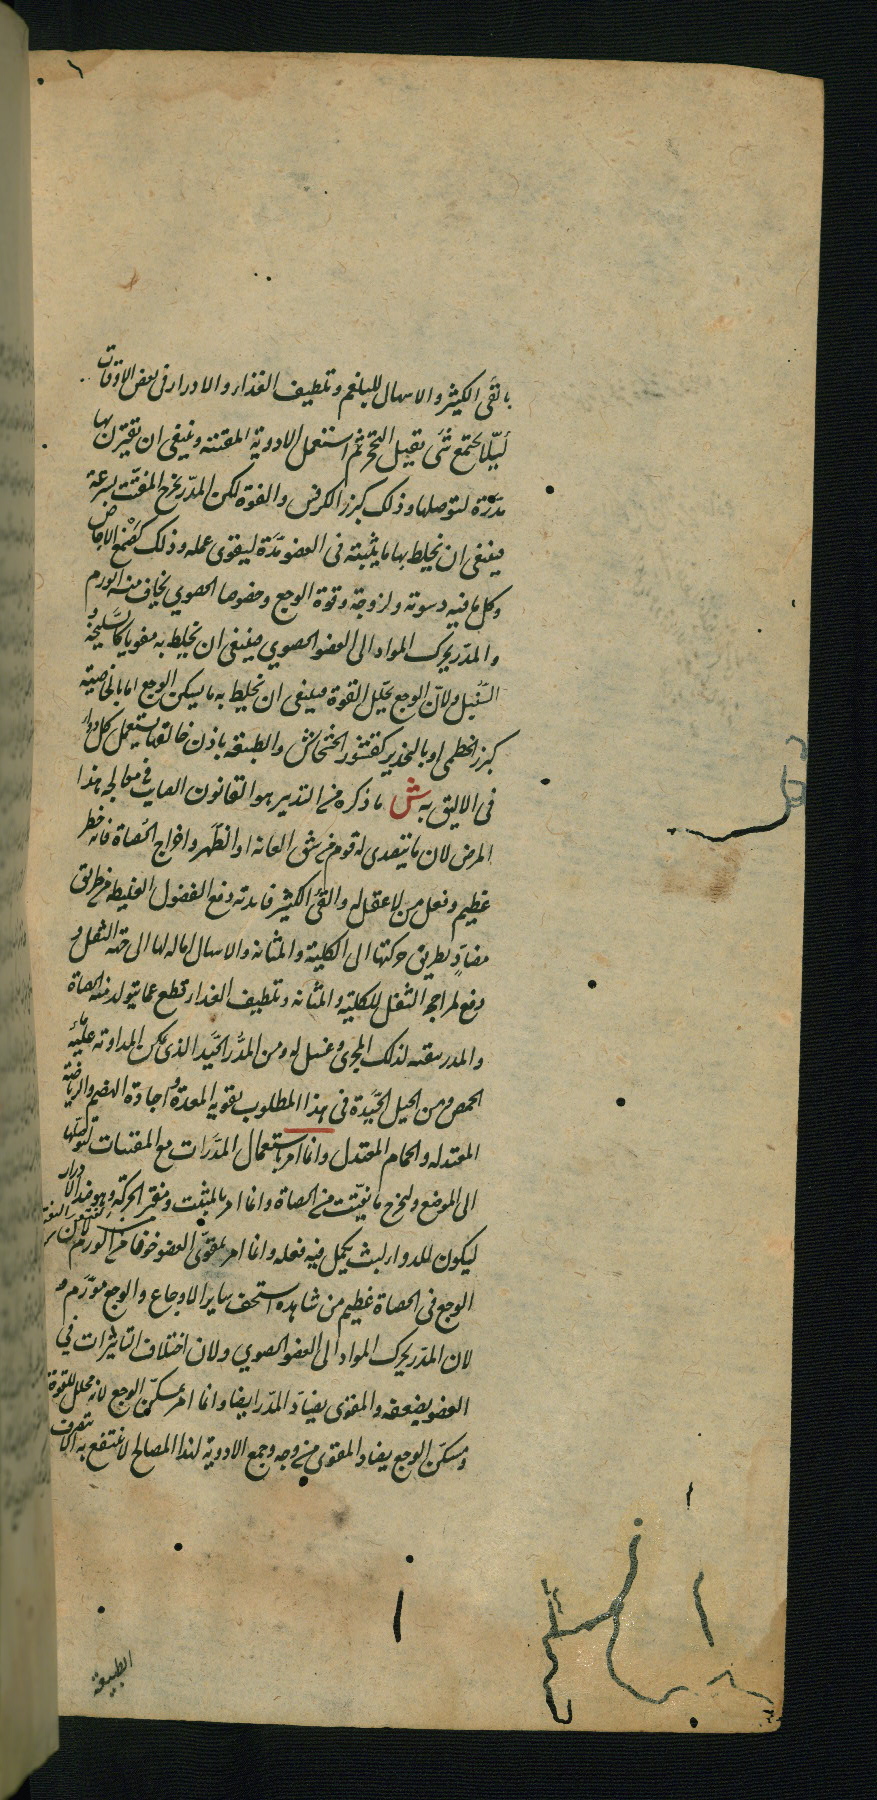 بالقئ الكثير والاسهال للبلغم وتلطيف الغذاء والادرار فى بعض الاوقات
ليلا يجتمع شئ يقبل التحجر ثم استعمل الادوية المفتتة وينبغى ان يقترن بها
مدرة لتوصلها وذلك كبزر الكرفس والفوة لكن المدر يخرج المفتت بسرعة
فينبغى ان يخلط بها ما يثبته فى العضو مدة ليقوى عمله وذلك كصمغ الاجاص
وكل ما فيه دسومة ولزوجة وقوة الوجع وخصوصا الحصوي يخاف منه الورم
والمدر يحرك المواد الى العضو الحصوي فينبغى ان يخلط به مقويا كالسليخة و
السنبل ولان الوجع يحلل القوة فينبغى ان يخلط به ما يسكن الوجع اما بالخاصية
كبزر الخطمى او بالتخدير كقشور الخشخاش والطبيعة باذن خالقها يستعمل كل دواء
فى الاليق به ش ما ذكره من التدبير هو القانون الصايب فى معالجة هذا
المرض لان ما يتصدى له قوم من شق العانة او الظهر واخراج الحصاة فانه خطر
عظيم وفعل من لا عقل له والقئ الكثير فايدته دفع الفضول الغليظة من طريق
مضاد لطريق حركتها الى الكلية والمثانة والاسهال امالة لها الى جهة الثفل و
دفع لمزاحمة الثفل للكلية والمثانة وتلطيف الغذاء قطع عما يتولد منه الحصاة
والمدر تنقية لذلك المجرى وغسل له ومن المدر الجيد الذى يمكن المداومة عليه ماء
الحمص ومن الحيل الجيدة فى هذا المطلوب تقوية المعدة واجادة الهضم والرياضة
المعتدلة والحمام المعتدل وانما امر باستعمال المدرات مع المفتتات لتوصلها
الى الموضع وليخرج ما تفتت من الحصاة وانما امر بالمثبت ومفتر الحركة وهو ضد الادرار
ليكون للدواء لبث يكمل فيه فعله وانما امر بمقوى العضو خوفا من الورم لان
الوجع فى الحصاة عظيم من شاهده استخف ساير الاوجاع والوجع مورم و
لان المدر يحرك المواد الى العضو الحصوي ولان اختلاف التاثيرات فى
العضو يضعفه والمقوى يضاد المدر ايضا وانما امر بمسكن الوجع لانه محلل للقوة
ومسكن الوجع يضاد المقوى من وجه وجمع الادوية لهذا المصالح لا ينتفع به الا بتصرف
الطبيعة